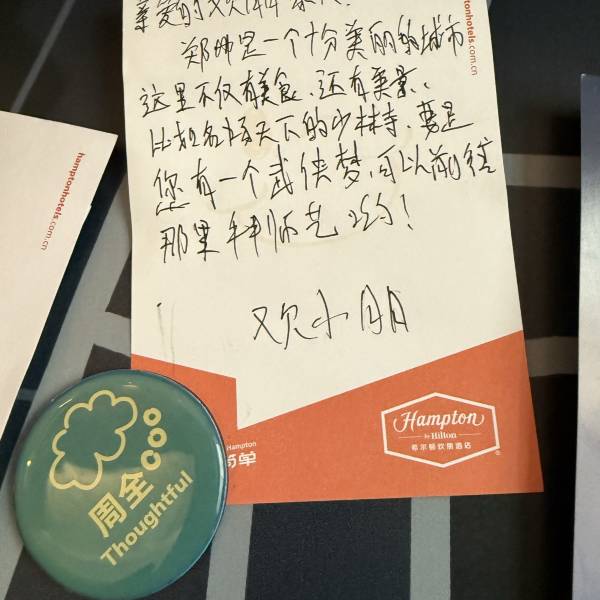 亲爱的欢朋家人、
郑州是一个十分美丽的城市
这里不仅有美食、还有美景、
比如名扬天下的少林寺，要是
您有一个武侠梦，可以前往
那里拜师学艺哟！
欢小朋
hamptonhotels.com.cn
tonhotels.com.cn
Hampton
by Hilton
希尔顿欢朋酒店
Hampton
简单
周全
Thoughtful